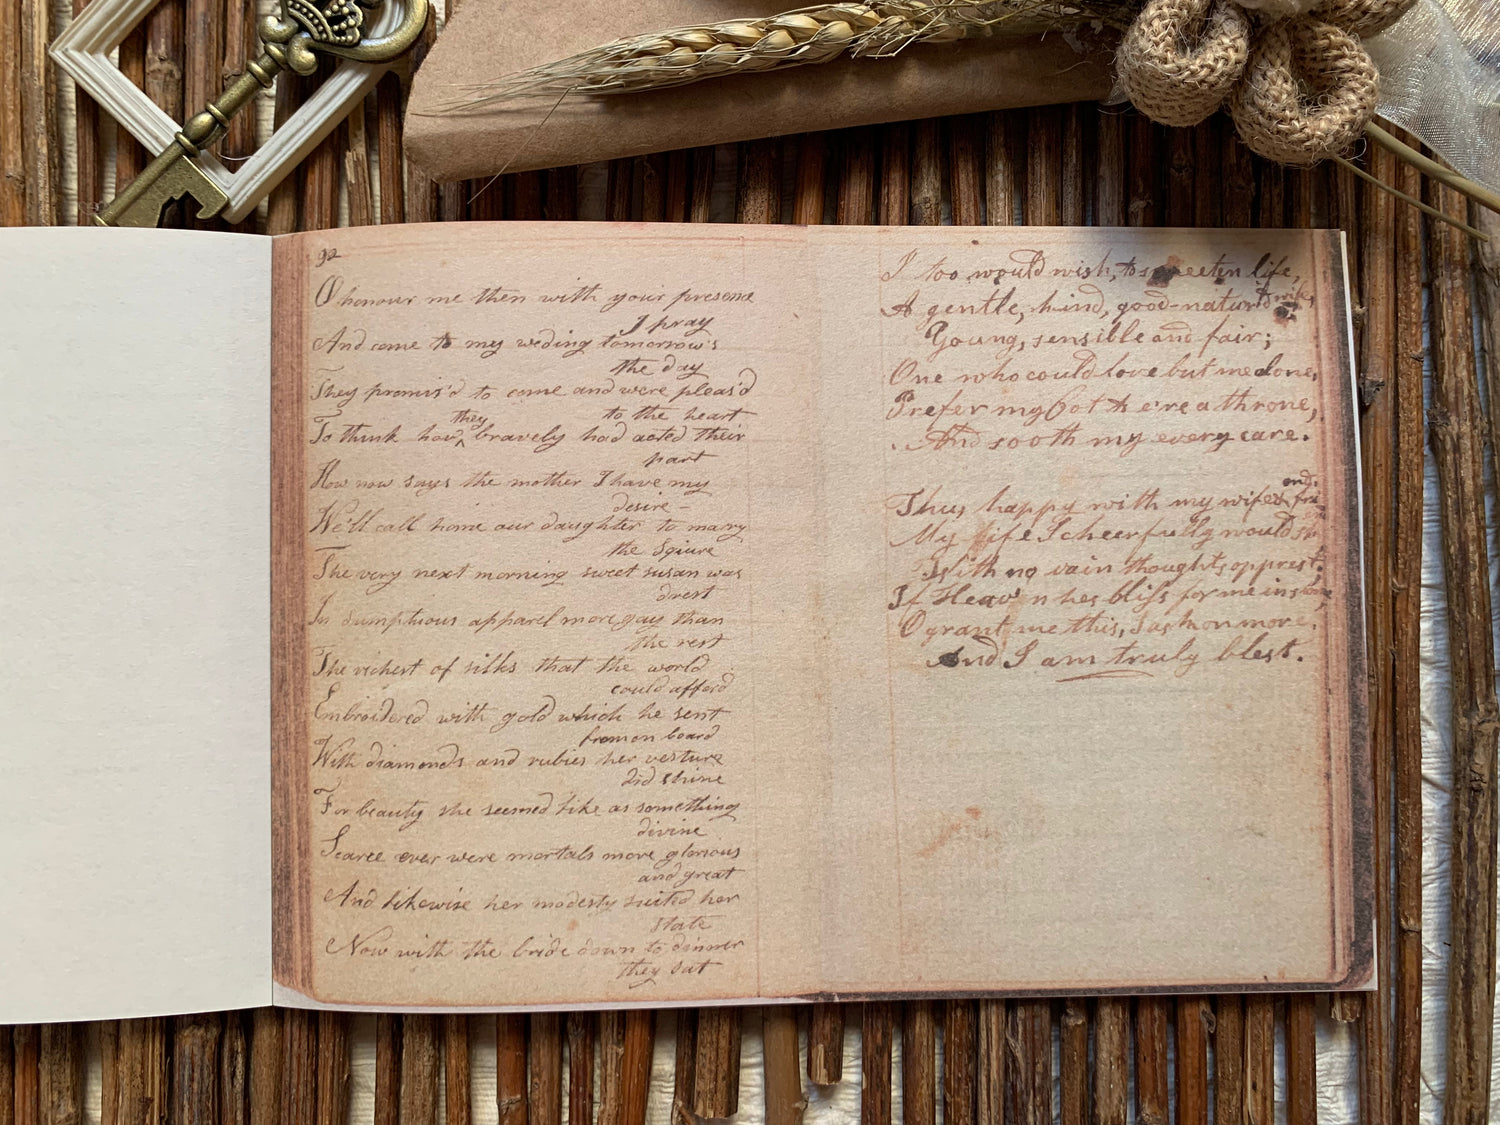 92
O honour me then with your presence
I pray
And come to my weding tomorrow's
the day
They promis'd to come and were pleas'd
to the heart
To think how they bravely had acted their
part
How now says the mother I have my
desire -
We'll call home our daughter to marry
the Squire
The very next morning sweet susan was
drest
In sumptuous apparel more gay than
the rest
The richest of silks that the world
could afford
Embroidered with gold which he sent
from on board
With diamonds and rubies her vesture
did shine
For beauty she seemed like as something
divine
Scarce ever were mortals more glorious
and great
And likewise her modesty suited her
state
Now with the bride down to dinner
they sat
I too would wish, to sweeten life,
A gentle, kind, good-natur'd wife,
Young, sensible and fair;
One who could love but me alone,
Prefer my Cot to e're a throne,
And sooth my every care.
Thus happy with my wife and
My life I cheerfully would
With no vain thoughts opprest.
If Heav'n has bliss for me in store,
O grant me this, I ask no more,
And I am truly blest.